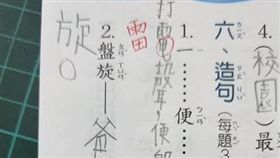 4.(校園)最
六、造句(每題3
1.一……便
打電聲，便
雷
2.盤旋——
旋。